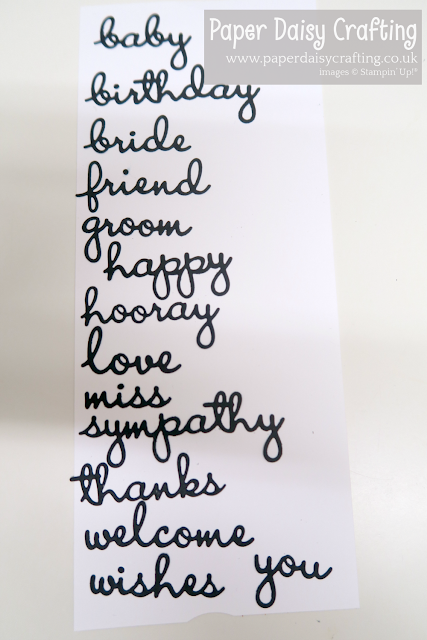 Paper Daisy Crafting
www.paperdaisycrafting.co.uk
images © Stampin' Up!®
baby
birthday
bride
friend
groom
happy
hooray
love
miss
sympathy
thanks
welcome
wishes you